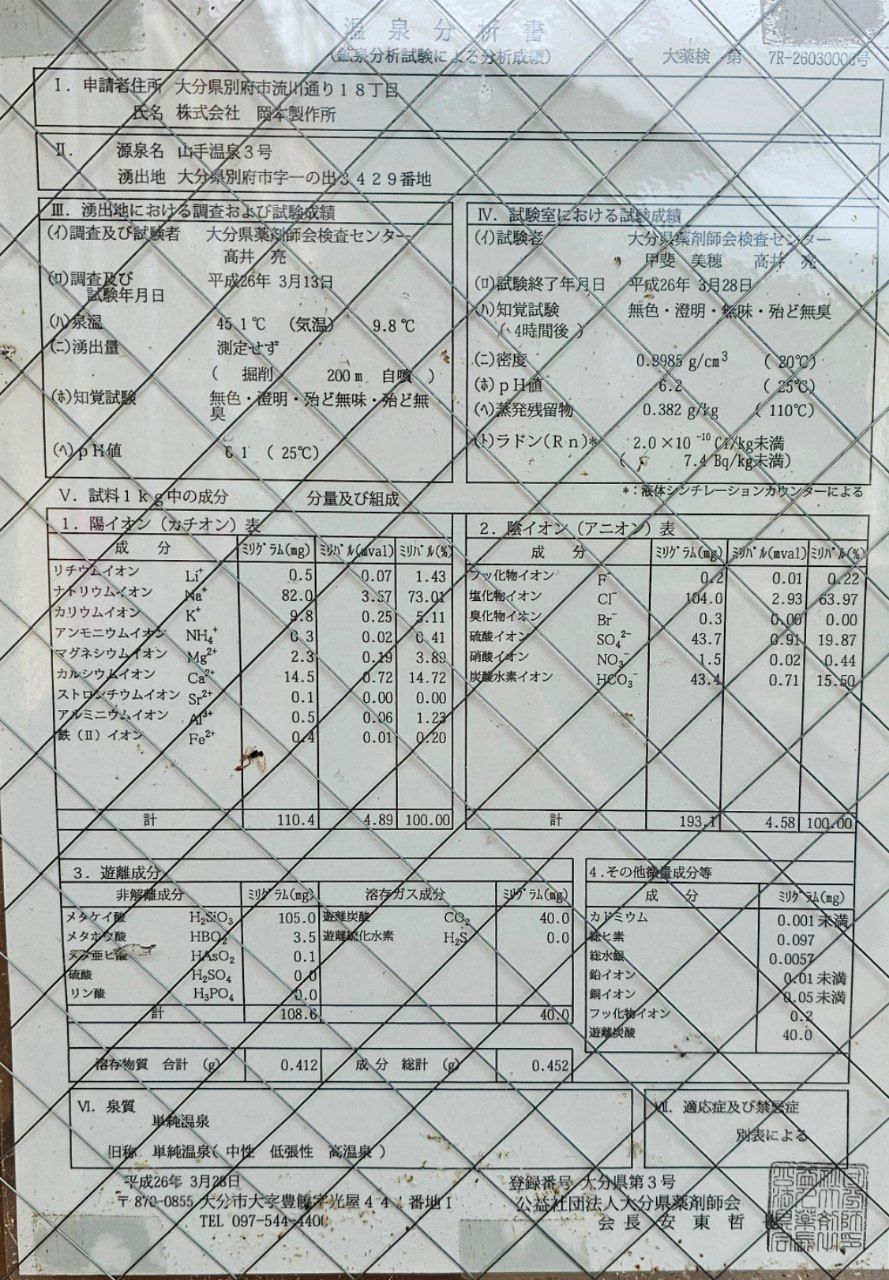 温泉分析書
(鉱泉分析試験による分析成績) 大薬検 第 7R-26030006号
Ⅰ. 申請者住所 大分県別府市流川通り18丁目
氏名 株式会社 岡本製作所
Ⅱ. 源泉名 山手温泉3号
湧出地 大分県別府市字一の出3429番地
Ⅲ. 湧出地における調査および試験成績
(イ)調査及び試験者 大分県薬剤師会検査センター
高井 亮
(ロ)調査及び 平成26年 3月13日
試験年月日
(ハ)泉温 45.1℃ (気温) 9.8℃
(ニ)湧出量 測定せず
( 掘削 200m 自噴 )
(ホ)知覚試験 無色・澄明・殆ど無味・殆ど無
臭
(ヘ)pH値 6.1 (25℃)
Ⅳ. 試験室における試験成績
(イ)試験者 大分県薬剤師会検査センター
甲斐 美穂 高井 亮
(ロ)試験終了年月日 平成26年 3月28日
(ハ)知覚試験 無色・澄明・無味・殆ど無臭
( 4時間後 )
(ニ)密度 0.9985 g/cm³ (20℃)
(ホ)pH値 6.2 (25℃)
(ヘ)蒸発残留物 0.382 g/kg (110℃)
(ト)ラドン(Rn)* 2.0×10⁻¹⁰ Ci/kg未満
( 7.4 Bq/kg未満)
*:液体シンチレーションカウンターによる
Ⅴ. 試料1kg中の成分 分量及び組成
1. 陽イオン(カチオン)表
成分 ミリグラム(mg) ミリバル(mval) ミリバル(%)
リチウムイオン Li⁺ 0.5 0.07 1.43
ナトリウムイオン Na⁺ 82.0 3.57 73.01
カリウムイオン K⁺ 9.8 0.25 5.11
アンモニウムイオン NH₄⁺ 0.3 0.02 0.41
マグネシウムイオン Mg²⁺ 2.3 0.19 3.89
カルシウムイオン Ca²⁺ 14.5 0.72 14.72
ストロンチウムイオン Sr²⁺ 0.1 0.00 0.00
アルミニウムイオン Al³⁺ 0.5 0.06 1.23
鉄(Ⅱ)イオン Fe²⁺ 0.4 0.01 0.20
計 110.4 4.89 100.00
2. 陰イオン(アニオン)表
成分 ミリグラム(mg) ミリバル(mval) ミリバル(%)
フッ化物イオン F⁻ 0.2 0.01 0.22
塩化物イオン Cl⁻ 104.0 2.93 63.97
臭化物イオン Br⁻ 0.3 0.00 0.00
硫酸イオン SO₄²⁻ 43.7 0.91 19.87
硝酸イオン NO₃⁻ 1.5 0.02 0.44
炭酸水素イオン HCO₃⁻ 43.4 0.71 15.50
計 193.1 4.58 100.00
3. 遊離成分
非解離成分 ミリグラム(mg) 溶存ガス成分 ミリグラム(mg)
メタケイ酸 H₂SiO₃ 105.0 遊離炭酸 CO₂ 40.0
メタホウ酸 HBO₂ 3.5 遊離硫化水素 H₂S 0.0
メタ亜ヒ酸 HAsO₂ 0.1
硫酸 H₂SO₄ 0.0
リン酸 H₃PO₄ 0.0
計 108.6 40.0
4.その他微量成分等
成分 ミリグラム(mg)
カドミウム 0.001 未満
総ヒ素 0.097
総水銀 0.0057
鉛イオン 0.01 未満
銅イオン 0.05 未満
フッ化物イオン 0.2
遊離炭酸 40.0
溶存物質 合計 (g) 0.412 成分 総計 (g) 0.452
Ⅵ. 泉質
単純温泉
旧称 単純温泉( 中性 低張性 高温泉 )
Ⅶ. 適応症及び禁忌症
別表による
平成26年 3月28日
〒870-0855 大分市大字豊饒字光屋441番地1
TEL 097-544-4400
登録番号 大分県第3号
公益社団法人大分県薬剤師会
会長 安東哲